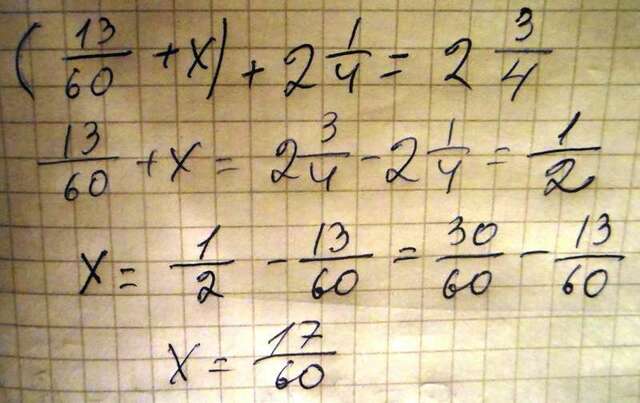 (13/60 + x) + 2 1/4 = 2 3/4
13/60 + x = 2 3/4 - 2 1/4 = 1/2
x = 1/2 - 13/60 = 30/60 - 13/60
x = 17/60